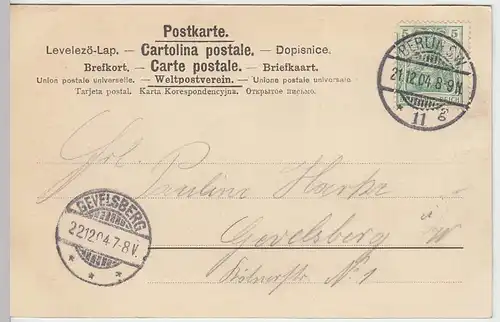 Postkarte.
Levelező-Lap. — Cartolina postale. — Dopisnice.
Brefkort. — Carte postale. — Briefkaart.
Union postale universelle. — Weltpostverein. — Unione postale universale
Tarjeta postal. Karta Korespondencyjna. Открытое письмо.
5 5
BERLIN S.W.
21.12.04.8-9N
* 11
Frl. Paulina
GEVELSBERG
22.12.04.7-8V.
* * *
Gevelsberg i/W
Kölnerstr. N. 1